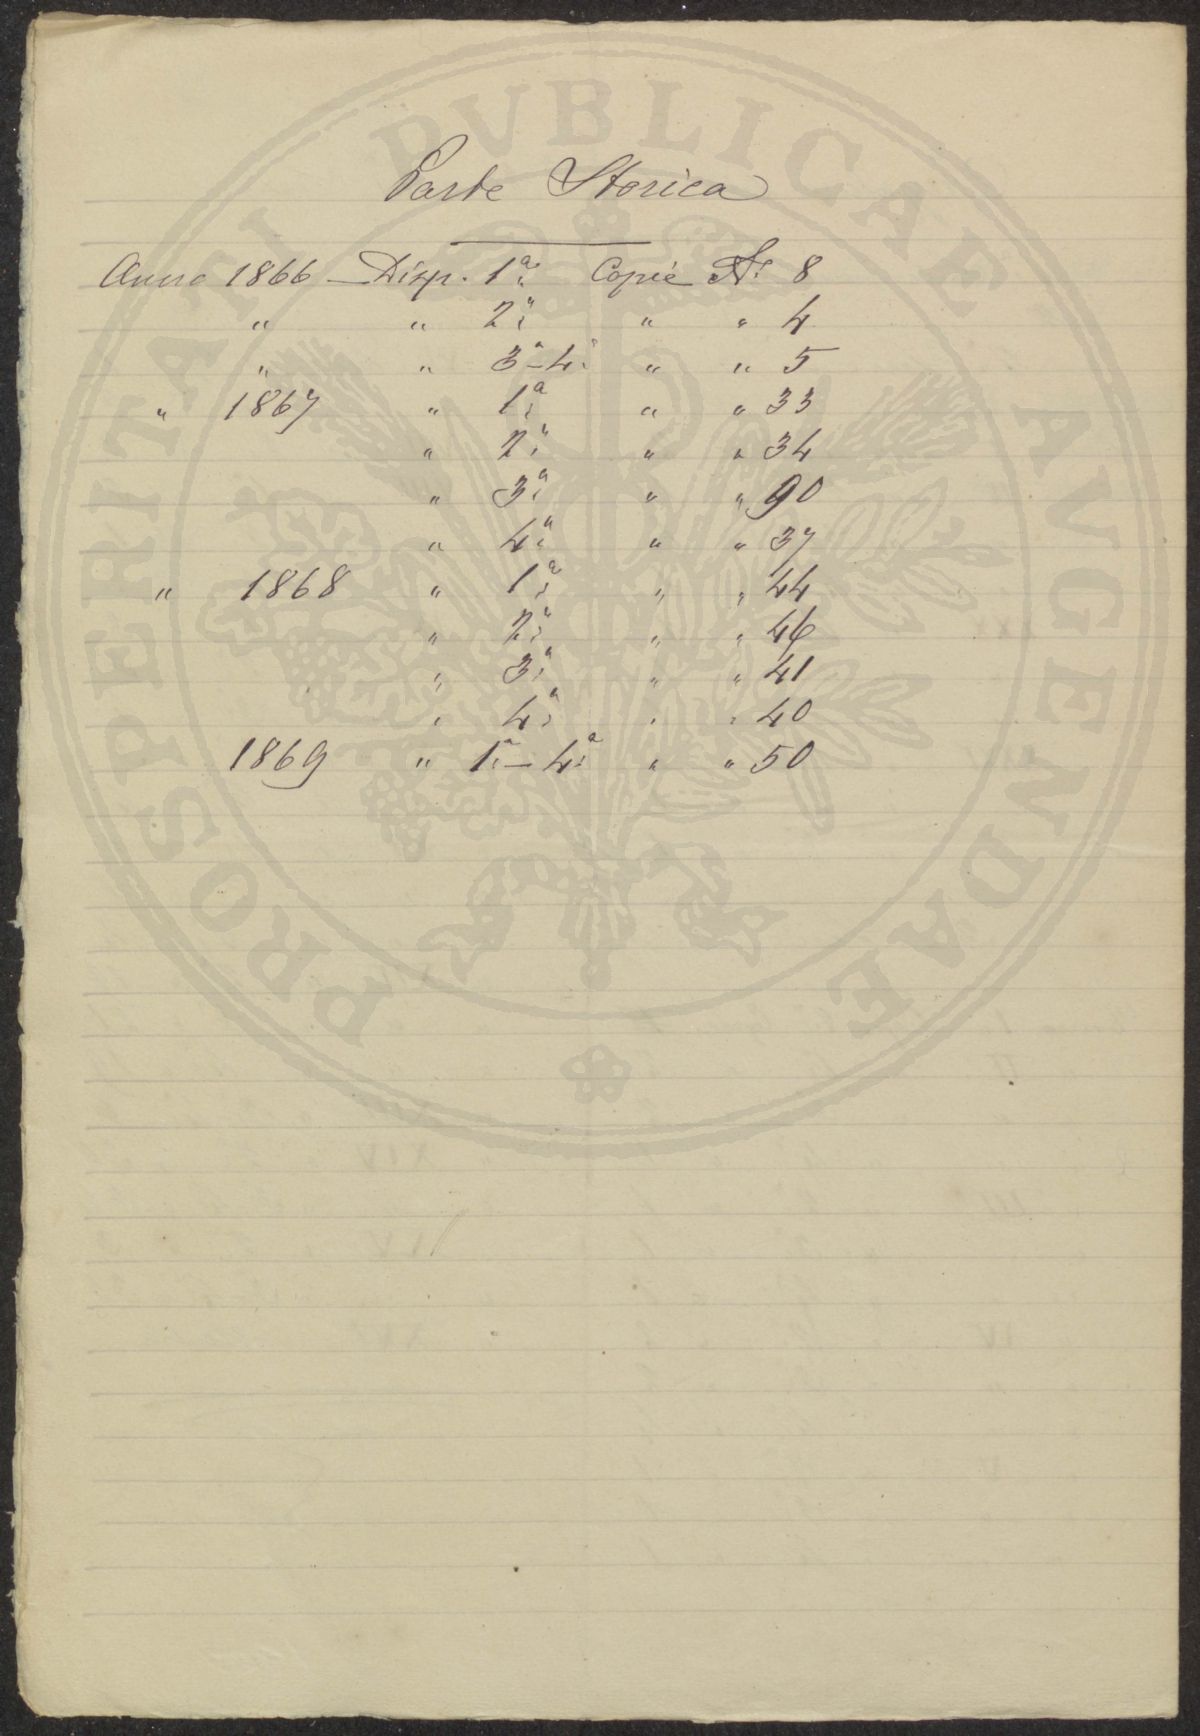 PROSPERITATI PVBLICAE AVGENDAE
Parte Storica
Anno 1866 – Disp. 1ª Copie Nº 8
" " 2ª " " 4
" " 3ª–4ª " " 5
" 1867 " 1ª " " 33
" 2ª " " 34
" 3ª " " 90
" 4ª " " 37
" 1868 " 1ª " " 44
" 2ª " " 46
" 3ª " " 41
" 4ª " " 40
1869 " 1ª–4ª " " 50